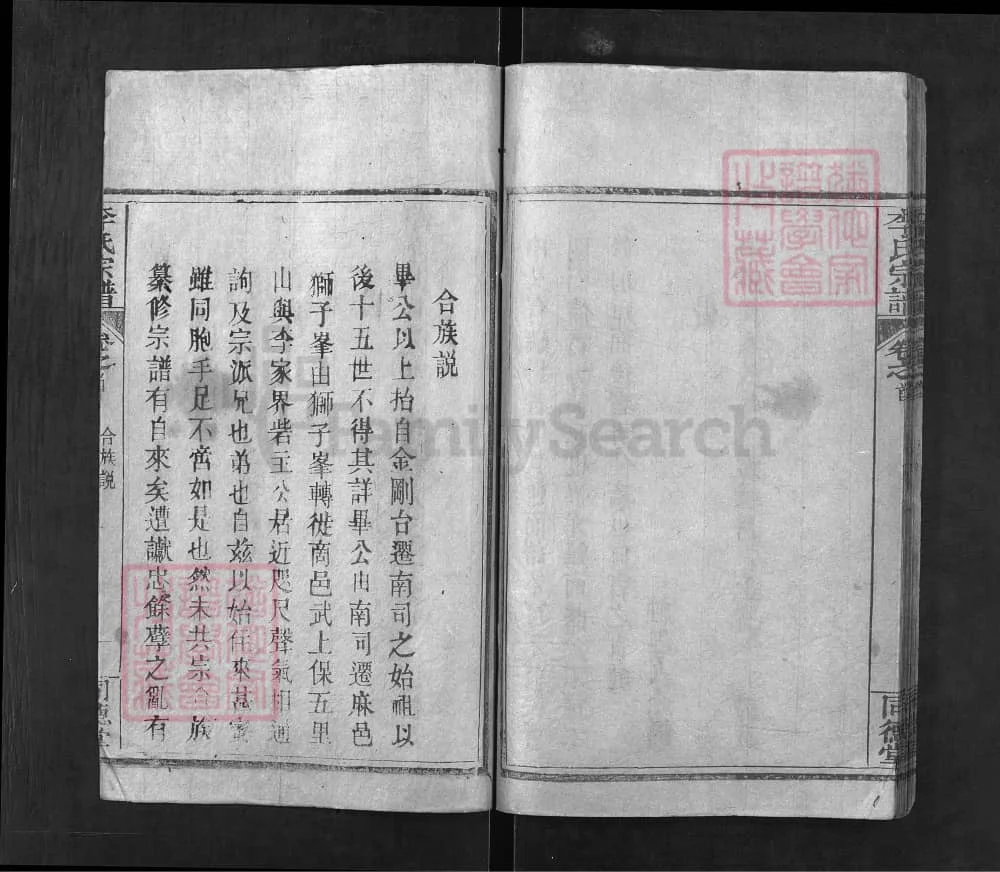 李氏宗譜
卷之首
同德堂
合族説
畢公以上抬自金剛台遷南司之始祖以
後十五世不得其詳畢公由南司遷麻邑
獅子峯由獅子峯轉徙商邑武上保五里
山與李家界砦王公居近咫尺聲氣相通
詢及宗派兄也弟也自兹以始往來甚密
雖同胞手足不啻如是也然未共宗合族
纂修宗譜有自來矣遭讞忠餘孽之亂有
李氏宗譜
卷之首
合族説
同德堂
FamilySearch